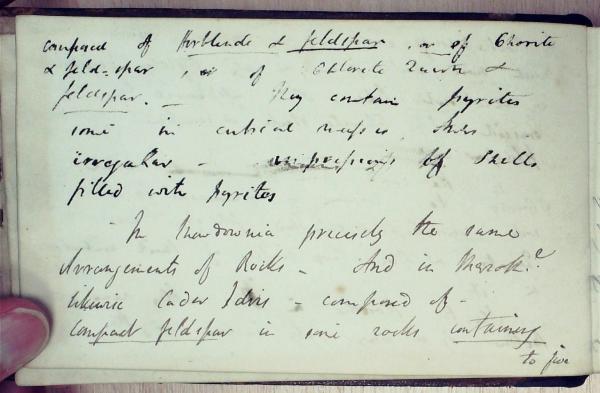 composed of Horblende & feldspar, or of Chorite
& feld-spar, or of Chlorite Quartz &
feldspar. — They contain pyrites
some in cubical masses, others
irregular — impressions of Shells
filled with pyrites
In precisely the same
Arrangements of Rocks — And in
likewise Cader Idris — composed of —
compact feldspar in some rocks containing
to five